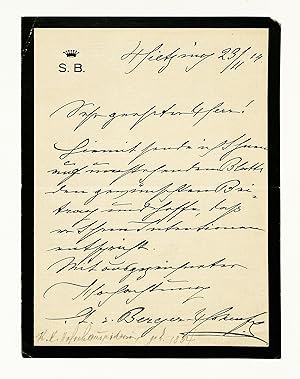 S. B.
Hietzing 23/11 14
Sehr geehrter Herr!
Hiermit sende ich Ihnen
auf umstehendem Blatte
den gewünschten Bei-
trag und hoffe, daß
er Ihren Intentionen
entspricht.
Mit ausgezeichneter
Hochachtung
Berger